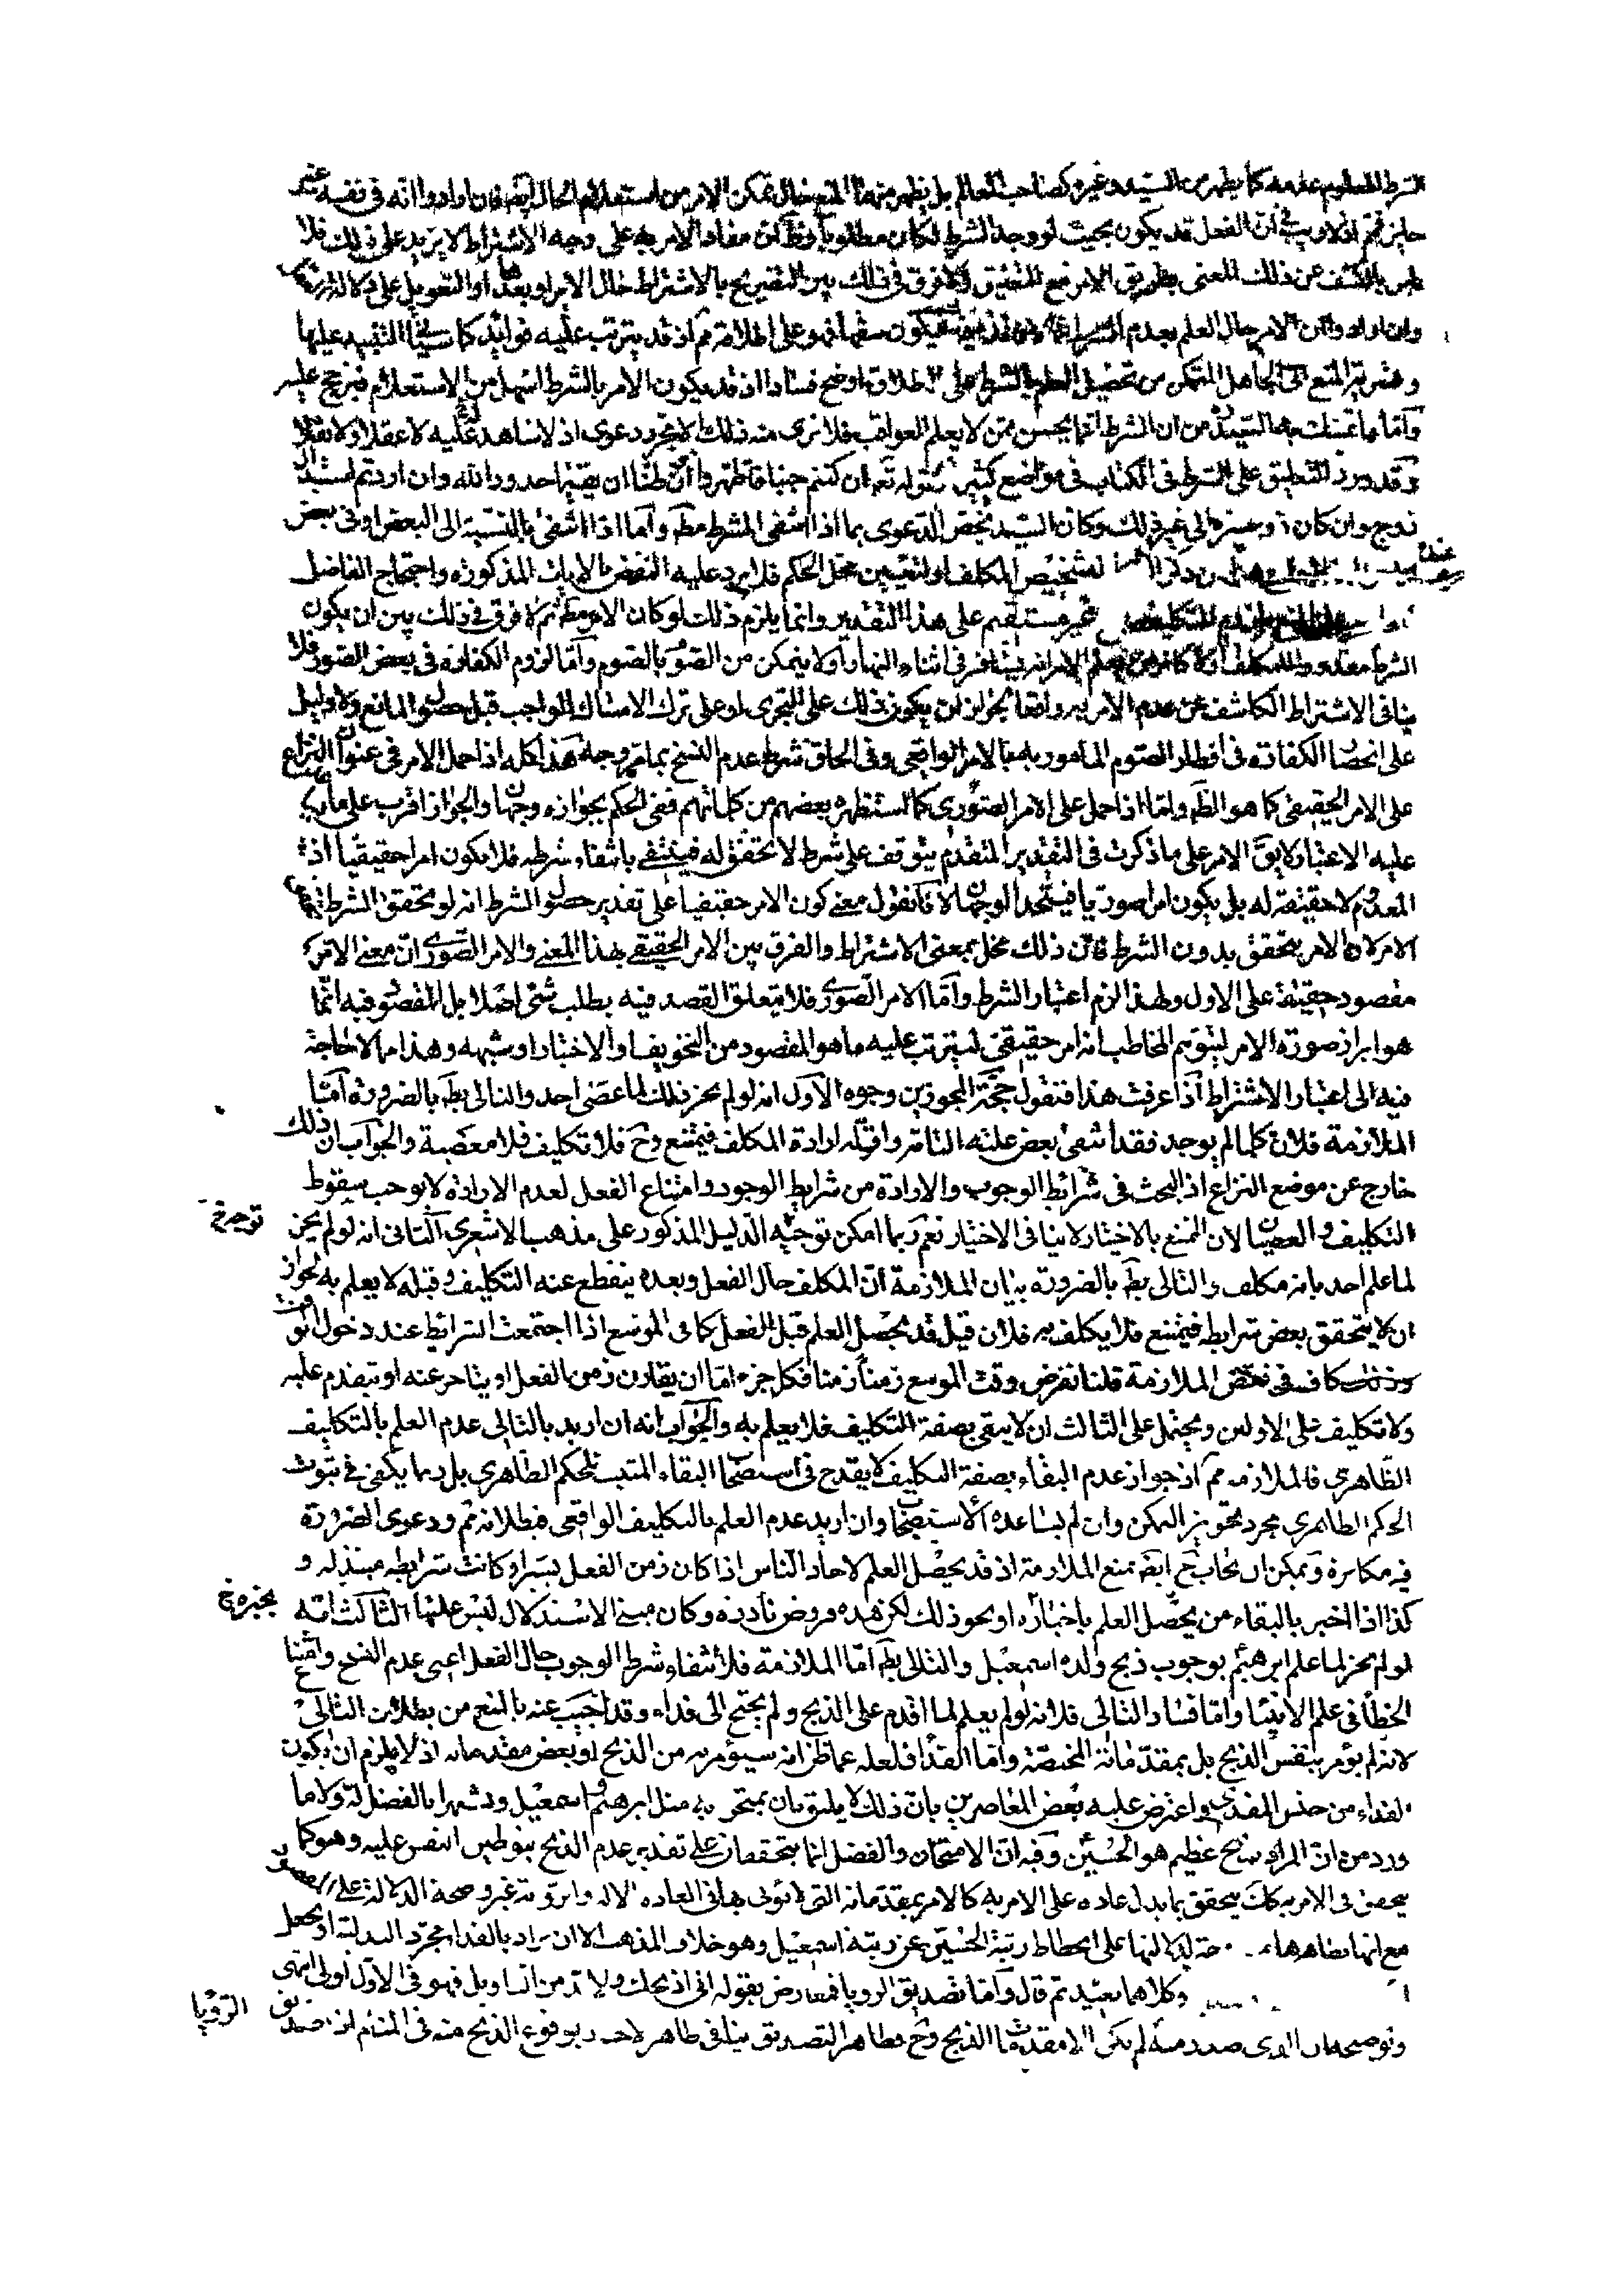 الشرط المعلوم عدمه كما يظهر من السيد وغيره كصاحب المعالم بل يظهر منهما المنع حال تمكن الامر من استعلام الحال ايضا فان ارادوا انه في نفسه غير
جايز فمم اذ لا ريب في ان الفعل قد يكون بحيث لو وجد الشرط لكان مطلوبا وظ ان مفاد الامر به على وجه الاشتراط لا يزيد على ذلك فلا
باس بالكشف عن ذلك المعنى بطريق الامر مع التعليق ولا فرق في ذلك بين التصريح بالاشتراط حال الامر او بعدها او التعويل على دلالة
وان ارادوا ان الامر حال العلم بعدم الشرط يكون سفها فهو على اطلاقه مم اذ قد يترتب عليه فوائد كما سيجئ التنبيه عليها
وتسرية المنع الى الجاهل المتمكن من تحصيل العلم بالشرط على الاطلاق اوضح فسادا اذ قد يكون الامر بالشرط اسهل من الاستعلام فيرجح عليه
واما ما تمسك به السيد من ان الشرط انما يحسن ممن لا يعلم العواقب فلا نرى منه ذلك الا مجرد دعوى اذ لا شاهد عليه لا عقلا ولا نقلا
وقد ورد التعليق على الشرط في الكتاب في مواضع كثيرة كقوله تعه ان كنتم جنبا فاطهروا ان ظنا ان يقيما حدود الله وان اردتم استبدال
زوج وان كان ذو عسرة الى غير ذلك وكان السيد يخص الدعوى بما اذا انتفى الشرط مط واما اذا انتفى بالنسبة الى البعض او في بعض
لتشخيص المكلف او لتعيين محل الحكم فلا يرد عليه النقض بالايات المذكورة واحتجاج الفاضل
غير مستقيم على هذا التقدير وانما يلزم ذلك لو كان الامر مط ثم لا فرق في ذلك بين ان يكون
الشرط مقدورا للمكلف او لا يسافر في اثناء النهار او لا يتمكن من الصوم بالصوم واما لزوم الكفارة في بعض الصور فلا
ينافي الاشتراط الكاشف عن عدم الامر به واقعا لجواز ان يكون ذلك على التجري او على ترك الامساك الواجب قبل حصول المانع ولا دليل
على انحصار الكفارة في افطار الصوم المامور به بالامر الواقعي وفي الحاق شرط عدم النسخ بما مر وجه هذا كله اذا حمل الامر في عنوان النزاع
على الامر الحقيقي كما هو الظ واما اذا حمل على الامر الصوري كما استظهره بعضهم من كلماتهم ففي الحكم بجوازه وجهان والجواز اقرب على ما
عليه الاعتبار لا يق الامر على ما ذكرت في التقدير المتقدم يتوقف على شرط لا تحقق له فينتفي بانتفاء شرطه فلا يكون امرا حقيقيا اذ
المعدوم لا حقيقة له بل يكون امرا صوريا فيتحد الوجهان لانا نقول معنى كون الامر حقيقيا على تقدير حصول الشرط انه لو تحقق الشرط
الامر لا ان الامر يتحقق بدون الشرط فان ذلك مخل بمعنى الاشتراط والفرق بين الامر الحقيقي بهذا المعنى والامر الصوري ان معنى الامر
مقصود حقيقة على الاول ولهذا لزم اعتبار الشرط واما الامر الصوري فلا يتعلق القصد فيه بطلب شئ اصلا بل المقصود فيه انما
هو ابراز صورة الامر ليتوهم المخاطب انه امر حقيقي ليترتب عليه ما هو المقصود من التخويف او الاختبار او شبهه وهذا مما لا حاجة
فيه الى اعتبار الاشتراط اذا عرفت هذا فنقول حجة المجوزين وجوه الاول انه لو لم يجز ذلك لما عصى احد والتالي بط بالضرورة اما
الملازمة فلان كلما لم يوجد فقد انتفى بعض علته التامة واقله ارادة المكلف فيمتنع وح فلا تكليف فلا معصية والجواب ان ذلك
خارج عن موضع النزاع اذ البحث في شرائط الوجوب والارادة من شرايط الوجود وامتناع الفعل لعدم الارادة لا يوجب سقوط
التكليف والعصيان لان المنع بالاختيار لا ينافي الاختيار نعم ربما امكن توجيه الدليل المذكور على مذهب الاشعري الثاني انه لو لم يجز
لما علم احد بانه مكلف والتالي بط بالضرورة بيان الملازمة ان المكلف حال الفعل وبعده ينقطع عنه التكليف وقبله لا يعلم به لجواز
ان لا يتحقق بعض شرايطه فيمتنع فلا يكلف به فلان قيل قد يحصل العلم قبل الفعل كما في الموسع اذا اجتمعت الشرائط عند دخول الوقت
وذلك كاف في نقض الملازمة قلنا نفرض وقت الموسع زمنا زمنا فكل جزء اما ان يقارن زمن الفعل او يتاخر عنه او يتقدم عليه
ولا تكليف على الاولين ويحتمل على الثالث ان لا يبقى بصفة التكليف فلا يعلم به والجواب انه ان اريد بالتالي عدم العلم بالتكليف
الظاهري فالملازمة مم اذ جواز عدم البقاء بصفة التكليف لا يقدح في استصحاب البقاء المثبت للحكم الظاهري بل ربما يكفي في ثبوت
الحكم الظاهري مجرد تجويز التمكن وان لم يساعده الاستصحاب وان اريد عدم العلم بالتكليف الواقعي فبطلانه مم ودعوى الضرورة
فيه مكابرة ويمكن ان يجاب ح ايضا بمنع الملازمة اذ قد يحصل العلم لاحاد الناس اذا كان زمن الفعل يسيرا وكانت شرايطه مبتذلة و
كذا اذا اخبر بالبقاء من يحصل العلم باخباره او نحو ذلك لكن هذه فروض نادرة وكان مبنى الاستدلال ليس عليها الثالث انه
لو لم يجز لما علم ابرهيم بوجوب ذبح ولده اسمعيل والتالي بط اما الملازمة فلانتفاء شرط الوجوب حال الفعل اعني عدم النسخ وامتناع
الخطأ في علم الانبياء واما فساد التالي فلانه لو لم يعلم لما اقدم على الذبح ولم يحتج الى فداء وقد اجيب عنه بالمنع من بطلان التالي
لانه لم يؤمر بنفس الذبح بل بمقدماته المختصة واما الفداء فلعله عما ظن انه سيؤمر به من الذبح او بعض مقدماته اذ لا يلزم ان يكون
الفداء من جنس المفدى واعترض عليه بعض المعاصرين بان ذلك لا يليق بان يمتحن به مثل ابرهيم واسمعيل ويشهرا بالفضل له ولا ما
ورد من ان المراد بذبح عظيم هو الحسين وفيه ان الامتحان والفضل انما يتحققان على تقدير عدم الذبح بتوطين النفس عليه وهو كما
يتحقق في الامر به كك يتحقق بما يدل عاده على الامر به كالامر بمقدماته التي لا يؤتى بها في العاده الا له
مع انها بظاهرها على انحطاط رتبة الحسين عن رتبة اسمعيل وهو خلاف المذهب الا ان يراد بالفداء مجرد البدلية او يجعل
وكلاهما بعيد ثم قال واما تصديق الرويا فمعارض بقوله اني اذبحك ولا بد من التاويل فهو في الاول اولى انتهى
وتوضيحه ان الذي صدر منه لم يكن الا مقدمات الذبح وح فظاهر التصديق ينافي ظاهر وقوع الذبح منه في المنام
الرؤيا